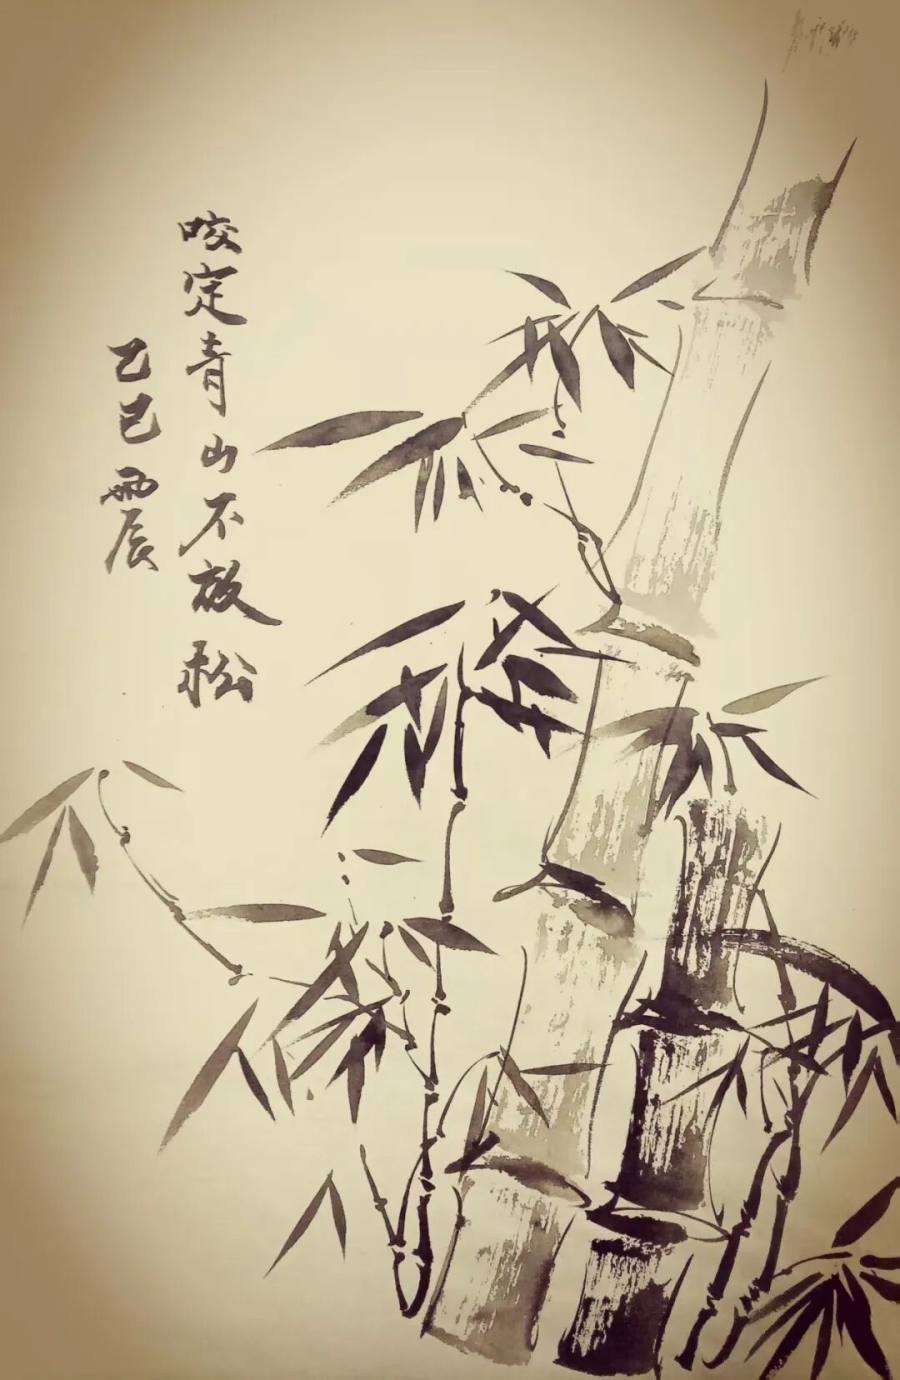 咬定青山不放松
乙巳 震